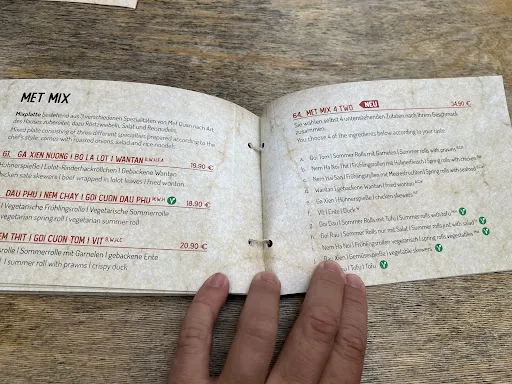 MET MIX
Mixplatte bestehend aus 3 verschiedenen Spezialitäten von Met Quan nach Art
des Hauses zubereitet, dazu Röstzwiebeln, Salat und Reisnudeln.
Mixed plate consisting of three different specialties prepared according to the
chef's style, comes with roasted onions, salad and rice noodels.
61. GA XIEN NUONG I BO LA LOT I WANTAN
19.90 €
Hühnerspieße I Lolot-Rinderhackröllchen I Gebackene Wantan
chicken saté skewers I beef wrapped in lolot leaves I fried wonton
DAU PHU I NEM CHAY I GOI CUON DAU PHU V
18.90 €
I Vegetarische Frühlingsrolle I Vegetarische Sommerrolle
vegetarian spring roll I vegetarian summer roll
EM THIT I GOI CUON TOM I VIT
20.90 €
rolle I Sommerrolle mit Garnelen I gebackene Ente
I summer roll with prawns I crispy duck
64. MET MIX 4 TWO NEU
34.90 €
Sie wählen selbst 4 untenstehenden Zutaten nach Ihrem Geschmack
zusammen.
You choose 4 of the ingredients below according to your taste.
Goi Tom I Sommer Rolls mit Garnelen I Summer rolls with prawns
Nem Ha Noi Thit I Frühlingsrollen mit Hühnerfleisch I Spring rolls with chicken
Wantan I gebackene Wantan I fried wantan
Ga Xien I Hühnerspieße I chicken skewers
Vit I Ente I Duck
Goi Dau I Sommer Rolls mit Tofu I Summer rolls with tofu V
Goi Rau I Sommer Rolls nur mit Salat I Summer rolls only with salad V
Nem Ha Noi I Frühlingsrollen vegetarisch I spring rolls vegetables V
Rau Xien I Gemüsespieße I vegetable skewers V
I Tofu I Tofu V